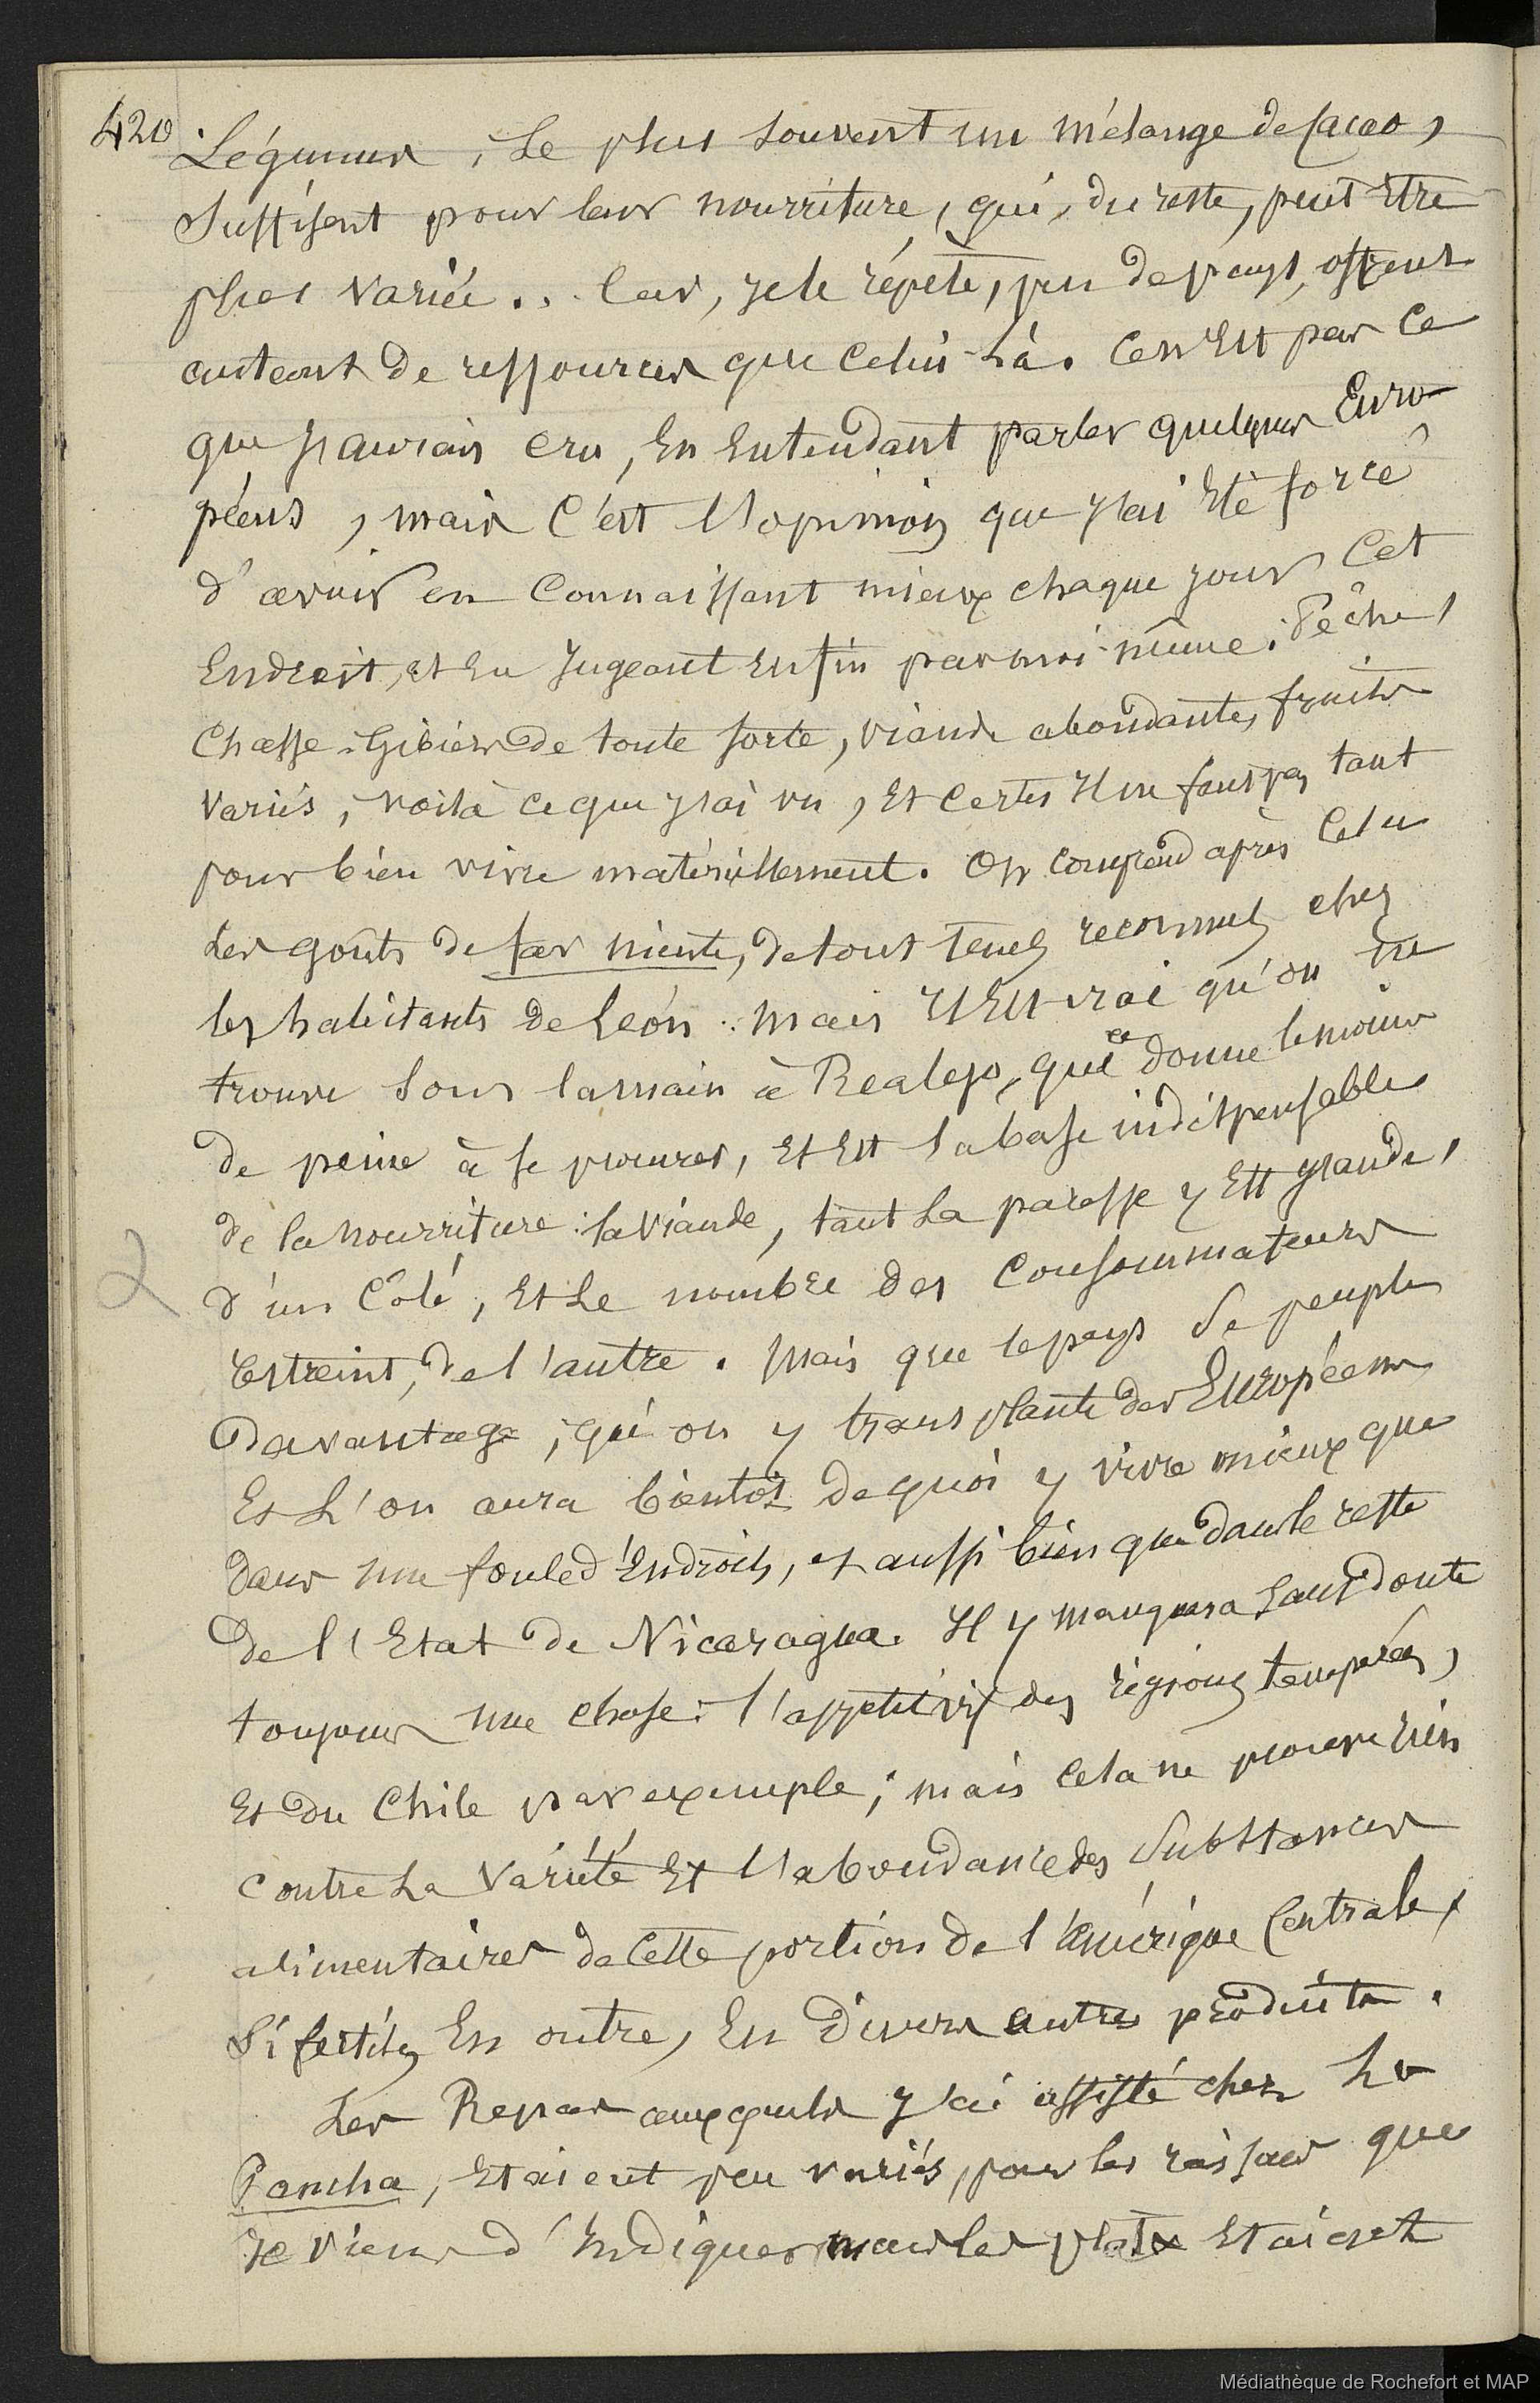 420
Légumes, le plus souvent un mélange de cacao,
suffisent pour leur nourriture, qui, du reste, peut être
plus variée... Car, je le répète, peu de pays, offrent
autant de ressources que celui-là. Ce n'est pas ce
que j'aurais cru, en entendant parler quelques Euro-
péens, mais c'est l'opinion que j'ai été forcé
d'avoir en connaissant mieux chaque jour cet
Endroit, et en jugeant enfin par moi-même. Pêche,
Chasse, Gibier de toute sorte, viande abondante, fruits
variés, voilà ce que j'ai vu, et certes il ne faut pas tant
pour bien vivre matériellement. On comprend après cela
les goûts de far niente, de tout tems reconnus chez
les habitants de León.. mais il est vrai qu'on ne
trouve sous la main à Realejo, que ce donne le moins
de peine à se procurer, et est la base indispensable
de la nourriture : la viande, tant la paresse y est grande,
d'un côté, et le nombre des consommateurs
2
restreint, de l'autre. Mais que le pays se peuple
Davantage, qu'on y transplante des Européens
Et l'on aura bientôt de quoi y vivre mieux que
dans une foule d'Endroits, et aussi bien que dans le reste
De l'Etat de Nicaragua. Il y manquera sans doute
toujours une chose : l'appétit vif des régions tempérées,
Et du Chile par exemple ; mais cela ne prouve rien
contre la variété et l'abondance des substances
alimentaires de cette portion de l'Amérique Centrale,
si fertile, en outre, en divers autres produits.
Les Repas auxquels j'ai assisté chez la
Pancha, étaient peu variés, pour les raisons que
je viens d'indiquer mais les plats étaient
Médiathèque de Rochefort et MAP